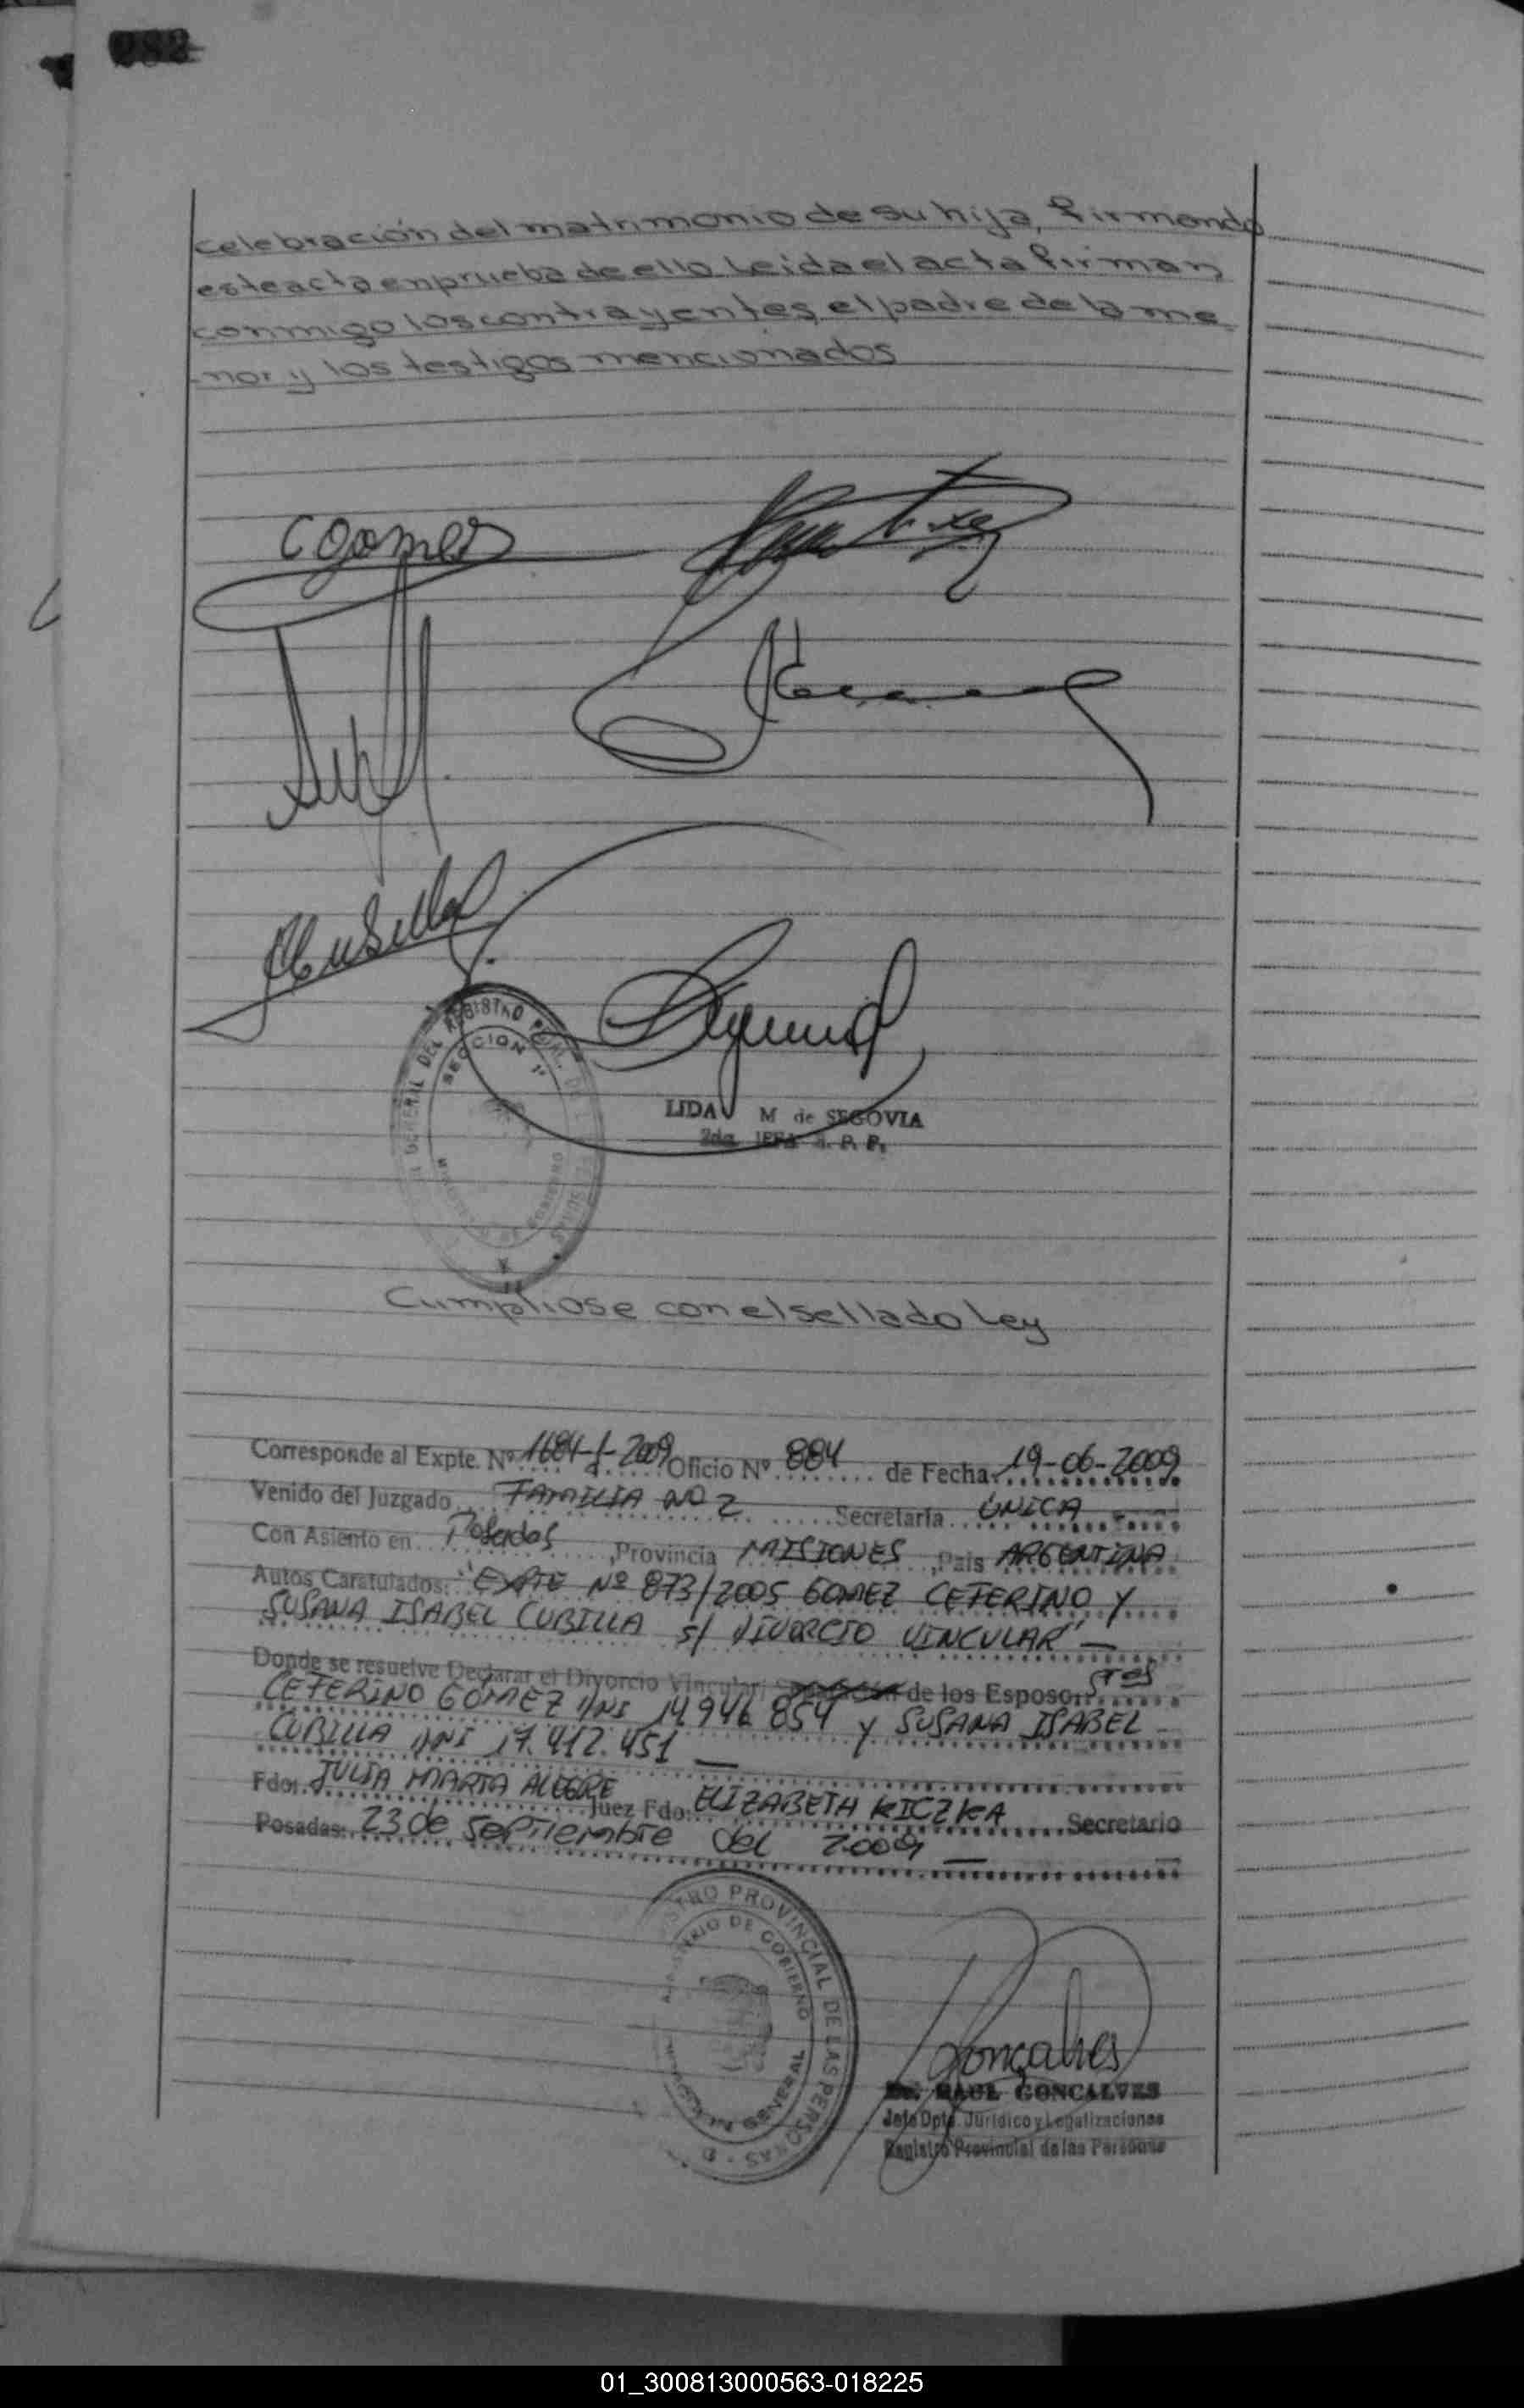 celebración del matrimonio de su hija, firmando
este acta en prueba de ello Leida el acta firman
conmigo los contrayentes, el padre de la me
-nor y los testigos mencionados
CGomez
SECCION 1ª
LIDA M de SEGOVIA
2da. JEFA R. P. P.
Cumpliose con el sellado Ley
Corresponde al Expte. Nº 1684-J-2009 Oficio Nº 884 de Fecha 19-06-2009
Venido del Juzgado FAMILIA Nº 2 Secretaría UNICA
Con Asiento en Posadas, Provincia MISIONES, Pais ARGENTINA
Autos Caratulados: "EXPTE Nº 873/2005 GOMEZ CEFERINO Y
SUSANA ISABEL CUBILLA S/ DIVORCIO VINCULAR" —
Donde se resuelve Declarar el Divorcio Vincular de los Esposos: Sres
CEFERINO GÓMEZ DNI 14946854 y SUSANA ISABEL
CUBILLA DNI 17.412.451 —
Fdo: JULIA MARTA ALEGRE Juez Fdo: ELIZABETH KICZKA Secretario
Posadas: 23 de Septiembre del 2009 —
REGISTRO PROVINCIAL DE LAS PERSONAS
MINISTERIO DE GOBIERNO
Gonçalves
Dr. RAUL GONCALVES
Jefe Dpto. Jurídico y Legalizaciones
Registro Provincial de las Personas
01_300813000563-018225